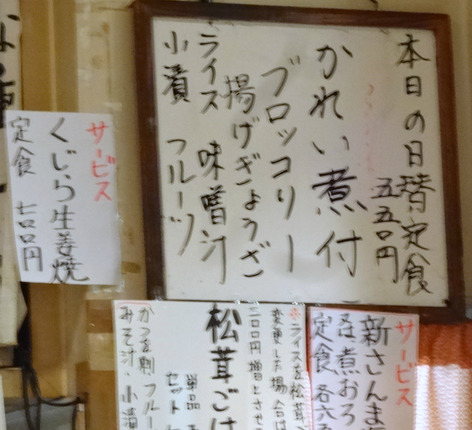 本日の日替定食
五五〇円
かれい煮付
ブロッコリー
揚げぎょうざ
ライス 味噌汁
小漬 フルーツ
サービス
くじら生姜焼
定食 七〇〇円
サービス
新さんま
煮おろ
定食 各六
※ライスを松茸
変更した場合は
二〇〇円増とさせ
松茸ごは
単品
セット
かつを削 フルー
みそ汁・小漬